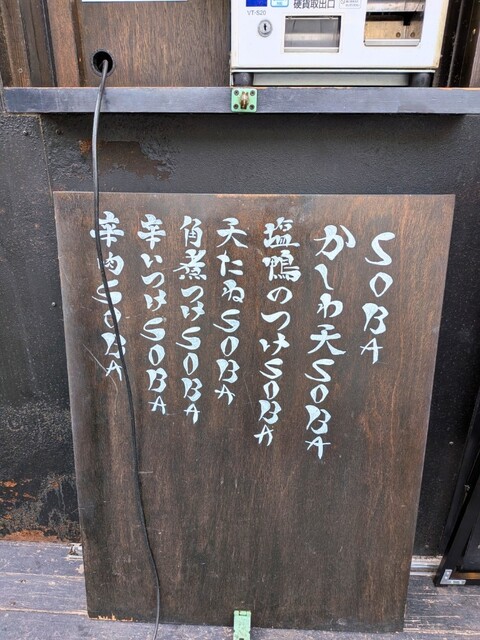 硬貨取出口
VT-S20
SOBA
かしわ天SOBA
塩鴨のつけSOBA
天たねSOBA
角煮つけSOBA
辛いつけSOBA
辛肉SOBA